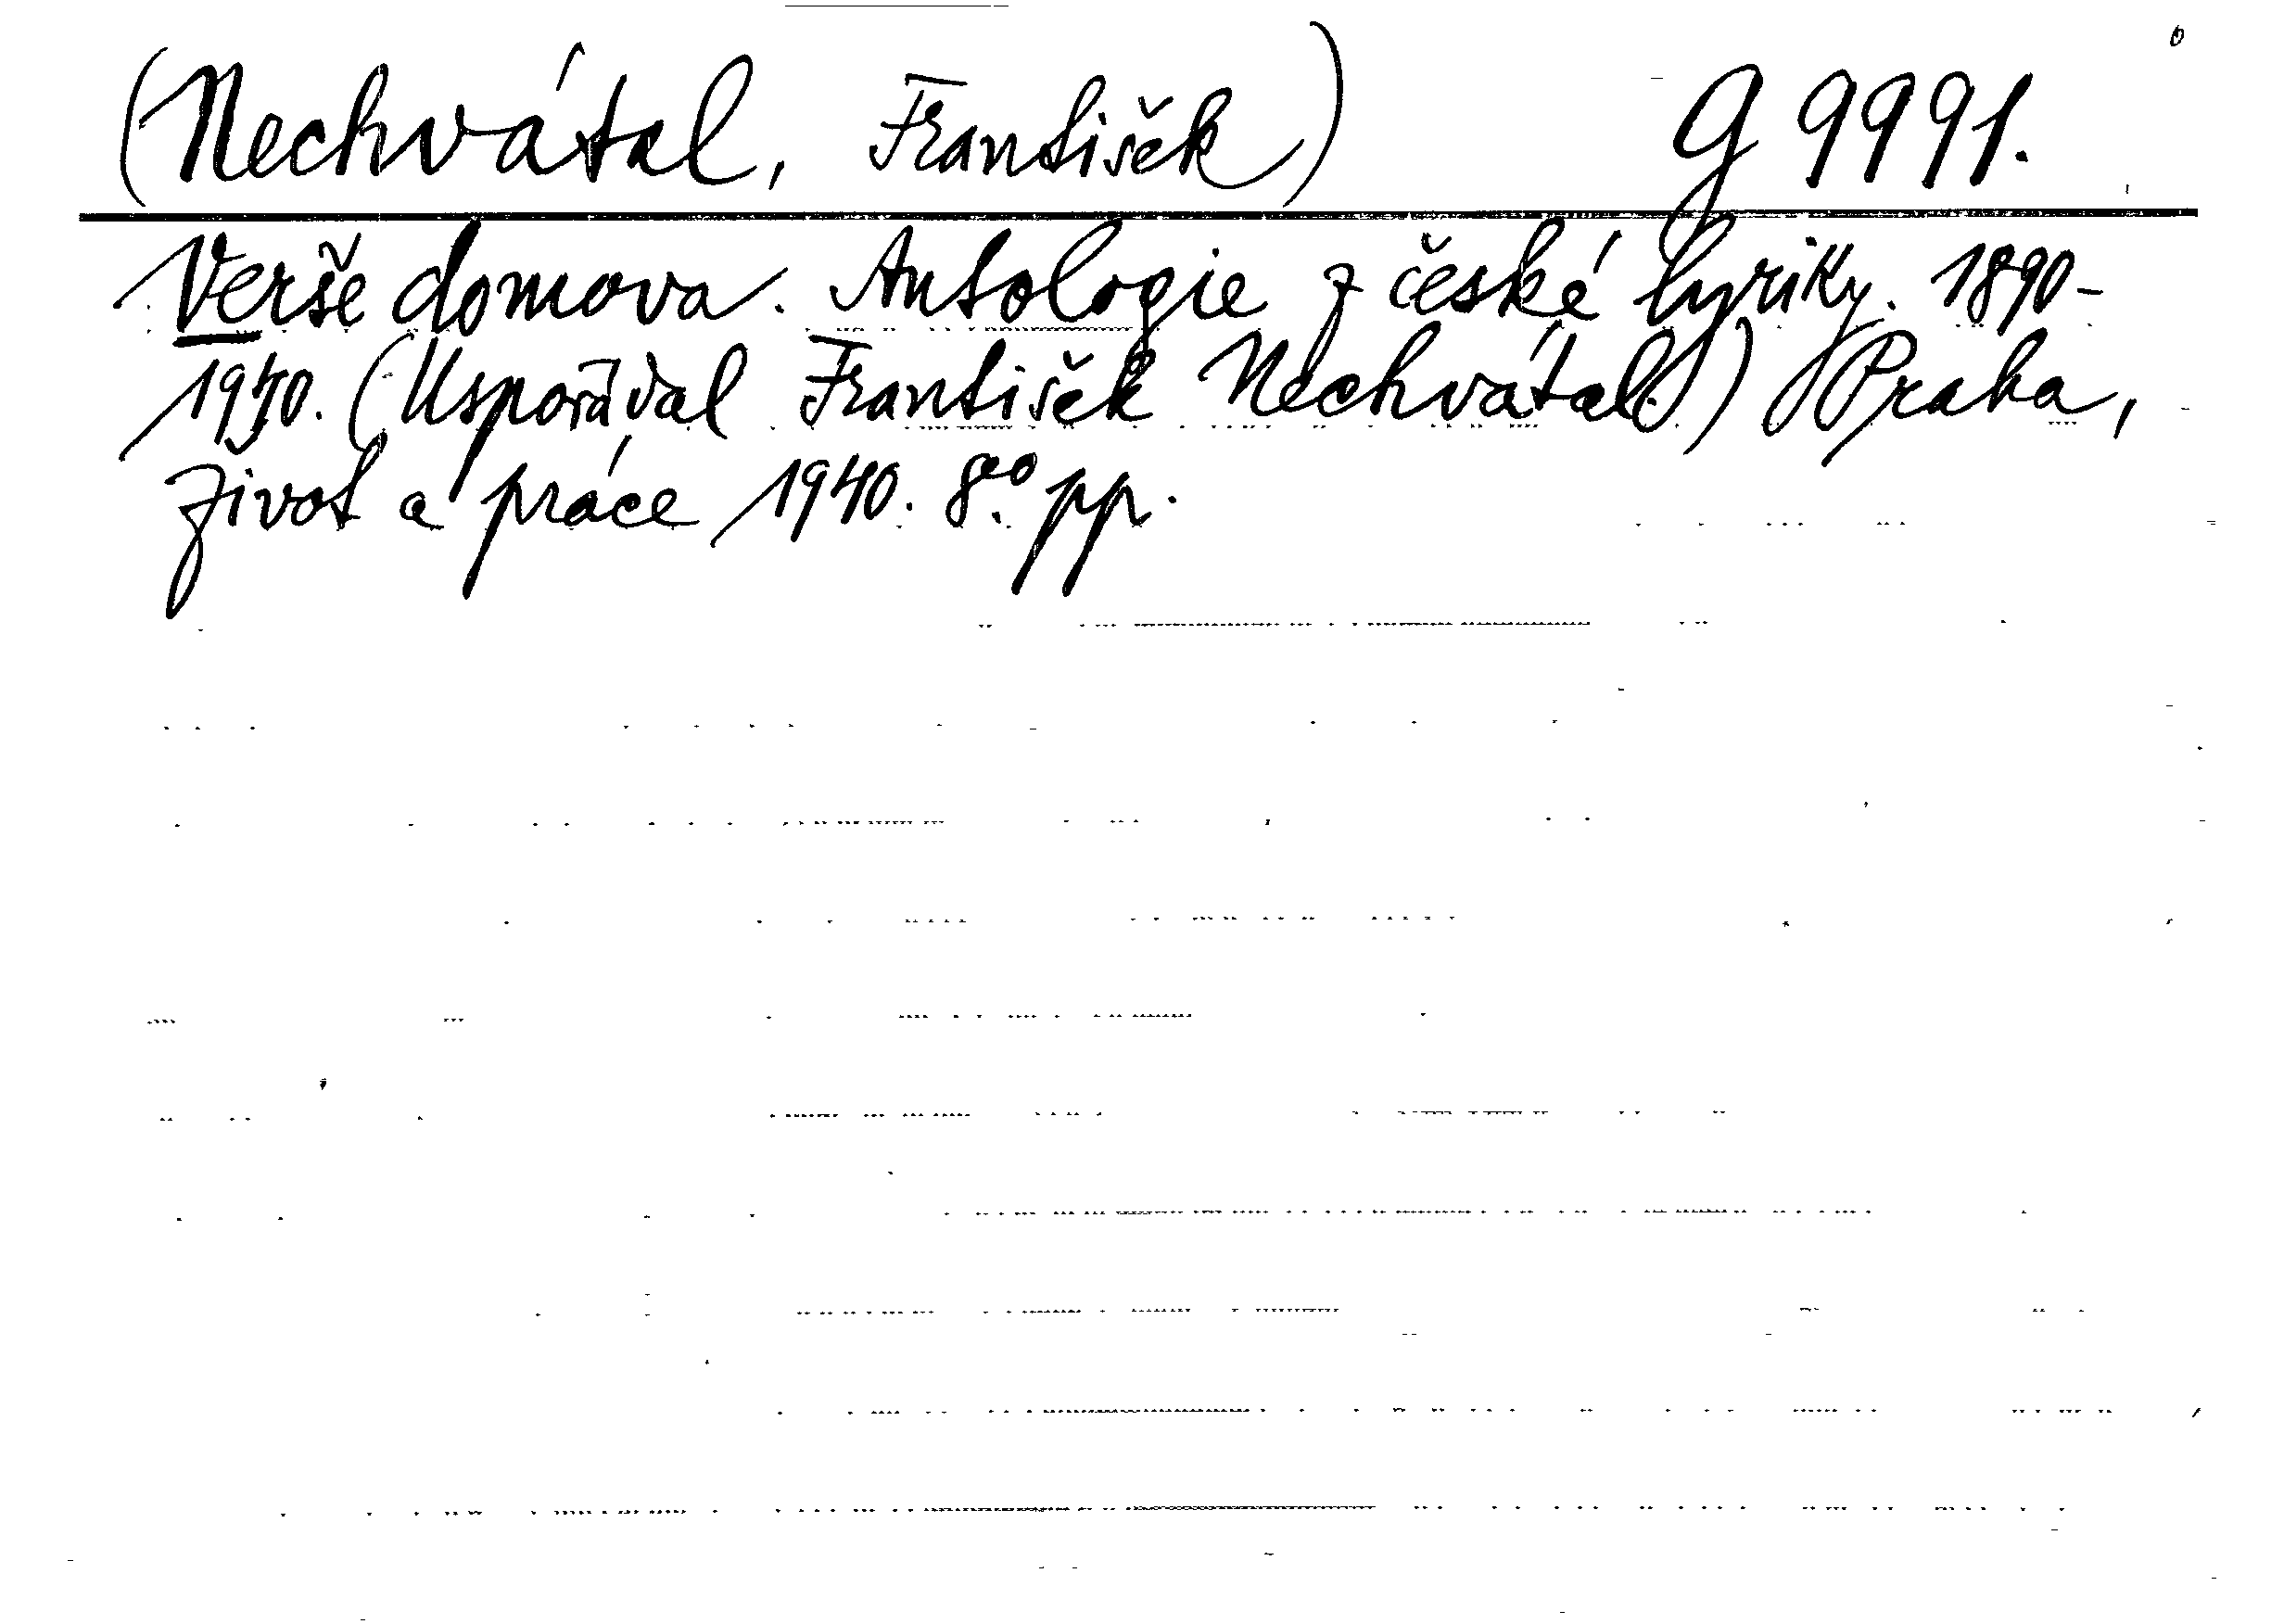 (Nechvátal, František) G 9991.
Verše domova. Antologie z české lyriky. 1890-
1940. (Uspořádal František Nechvátal.) Praha,
Život a práce 1940. 8vo pp.